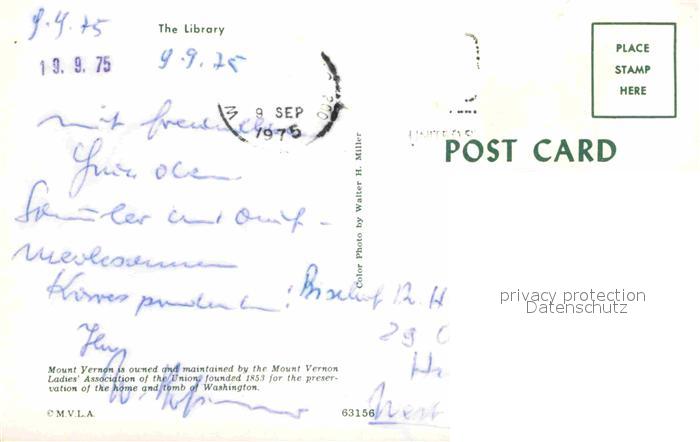 9.9.75
The Library
19. 9. 75
9.9.75
9 SEP
1975
PLACE
STAMP
HERE
POST CARD
mit freundlichen
Grüßen dem
Sammler und auf-
merksamen
Korrespondenten!
Ihr
Bischof Dr. H
29 O
West
Color Photo by Walter H. Miller
privacy protection
Datenschutz
Mount Vernon is owned and maintained by the Mount Vernon
Ladies' Association of the Union, founded 1853 for the preser-
vation of the home and tomb of Washington.
© M.V.L.A.
63156